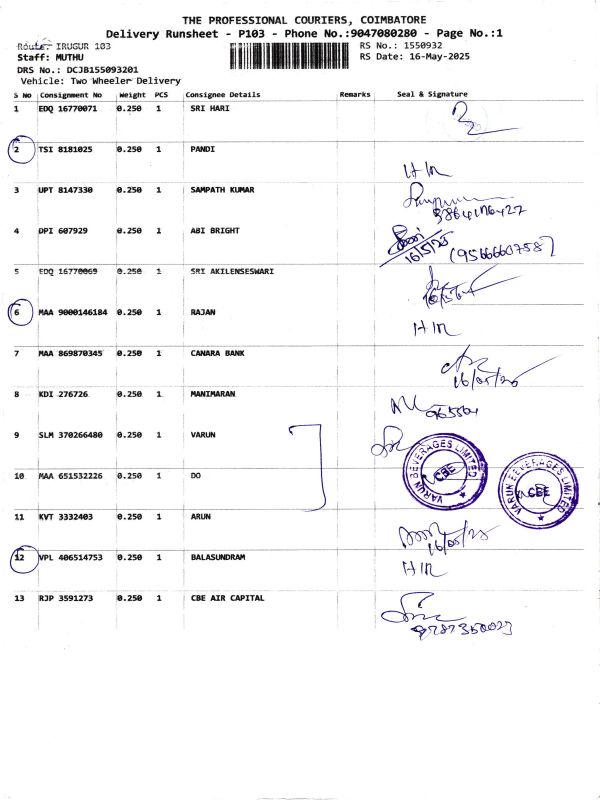 THE PROFESSIONAL COURIERS, COIMBATORE
Delivery Runsheet - P103 - Phone No.:9047080280 - Page No.:1
Route: IRUGUR 103
RS No.: 1550932
Staff: MUTHU
RS Date: 16-May-2025
DRS No.: DCJB155093201
Vehicle: Two Wheeler Delivery
S No Consignment No Weight PCS Consignee Details Remarks Seal & Signature
1 EDQ 16770071 0.250 1 SRI HARI
2 TSI 8181025 0.250 1 PANDI
3 UPT 8147330 0.250 1 SAMPATH KUMAR
4 DPI 607929 0.250 1 ABI BRIGHT
16/5/25
5 EDQ 16770069 0.250 1 SRI AKILENSESWARI
6 MAA 9000146184 0.250 1 RAJAN
7 MAA 869870345 0.250 1 CANARA BANK
16/05/25
8 KDI 276726 0.250 1 MANIMARAN
9 SLM 370266480 0.250 1 VARUN
VARUN BEVERAGES LIMITED
CBE
10 MAA 651532226 0.250 1 DO
VARUN BEVERAGES LIMITED
CBE
11 KVT 3332403 0.250 1 ARUN
16/05/25
12 VPL 406514753 0.250 1 BALASUNDRAM
13 RJP 3591273 0.250 1 CBE AIR CAPITAL